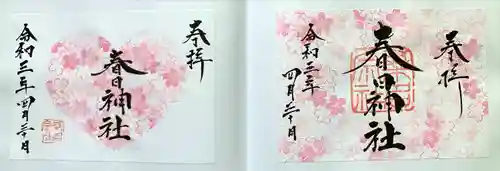 奉拝
春日神社
令和三年四月三十日
奉拝
春日神社
令和三年
四月三十日